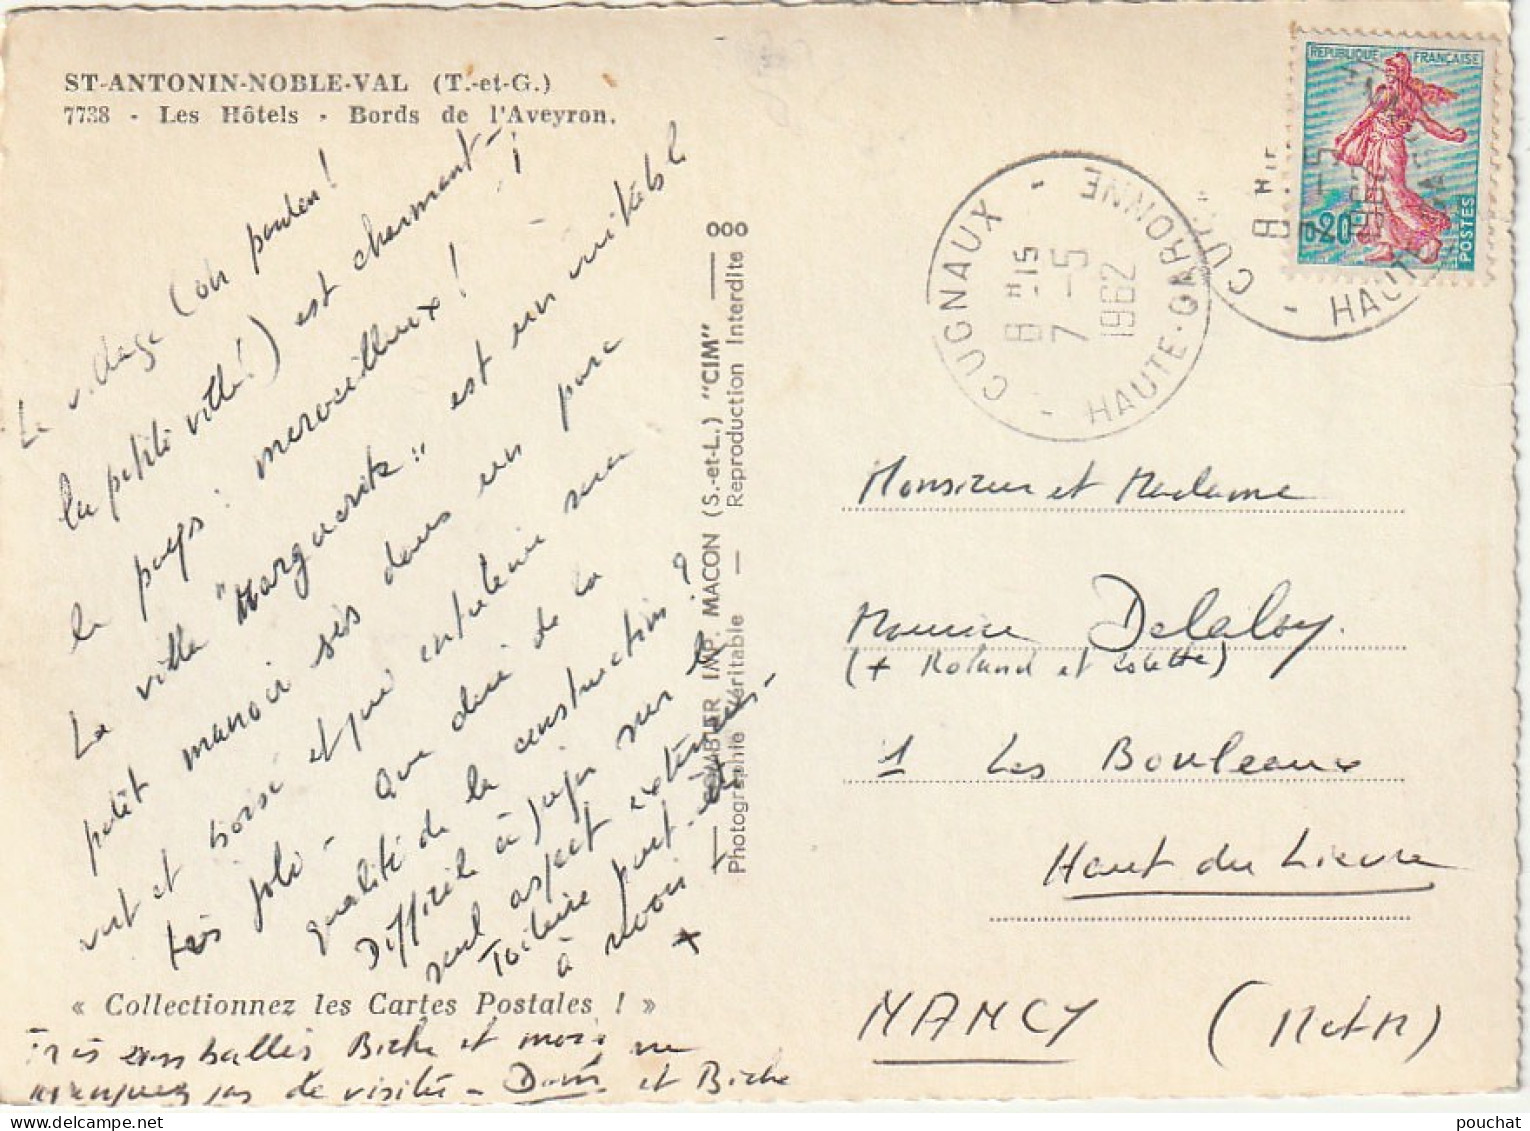 ST-ANTONIN-NOBLE-VAL (T.-et-G.)
7738 - Les Hôtels - Bords de l'Aveyron.
Le village (oh pardon!
la petite ville!) est charmant - !
le pays : merveilleux !
La villa "Marguerite" est un véritable
petit manoir sis dans un parc
vert et boisé et qui entretenu sera
très joli - Que dire de la
qualité de la construction ?
Difficile à juger sur le
seul aspect extérieur -
Toiture peut-être
à revoir !
« Collectionnez les Cartes Postales ! »
Très emballés Biche et moi ne
manquez pas de visiter - et Biche
COMBIER IMP. MACON (S.-et-L.) "CIM" — 000
Photographie Véritable — Reproduction Interdite
REPUBLIQUE FRANÇAISE
0,20
POSTES
CUGNAUX - HAUTE-GARONNE -
8H15
7-5
1962
Monsieur et Madame
Maurice Delaloy.
(+ Roland et Colette)
1 Les Bouleaux
Haut du Lièvre
NANCY (MetM)
pouchat